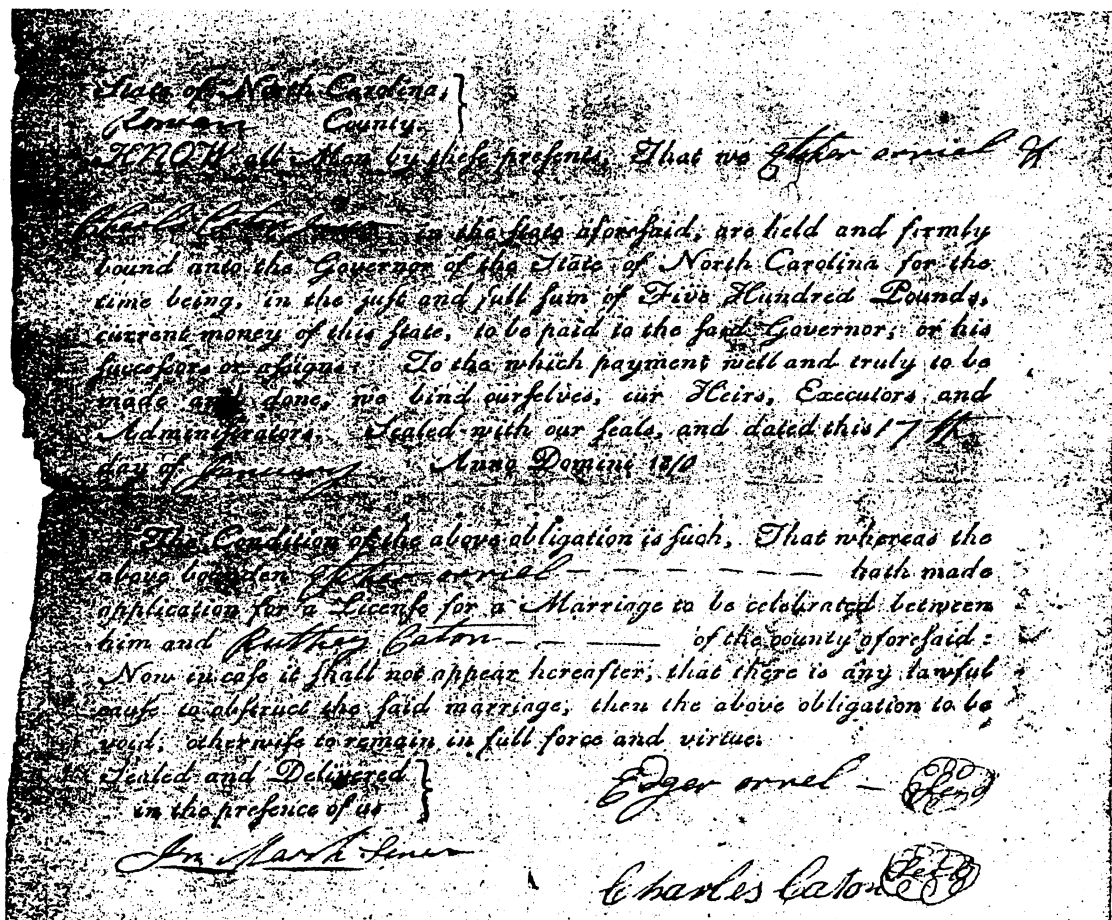 State of North Carolina,
Rowan County.
KNOW all Men by these presents, That we orriel &
Charls Caton in the state aforesaid, are held and firmly
bound unto the Governor of the State of North Carolina for the
time being, in the just and full sum of Five Hundred Pounds,
current money of this state, to be paid to the said Governor, or his
successors or assigns: To the which payment well and truly to be
made and done, we bind ourselves, our Heirs, Executors and
Administrators. Sealed with our seals, and dated this 17th
day of January Anno Domini 1810
The Condition of the above obligation is such, That whereas the
above bounden orriel hath made
application for a License for a Marriage to be celebrated between
him and Ruthey Caton of the county aforesaid:
Now in case it shall not appear hereafter, that there is any lawful
cause to obstruct the said marriage, then the above obligation to be
void, otherwise to remain in full force and virtue.
Sealed and Delivered
in the presence of us
Jn. March Sener
Edger orrel — Seal
Charles Caton Seal